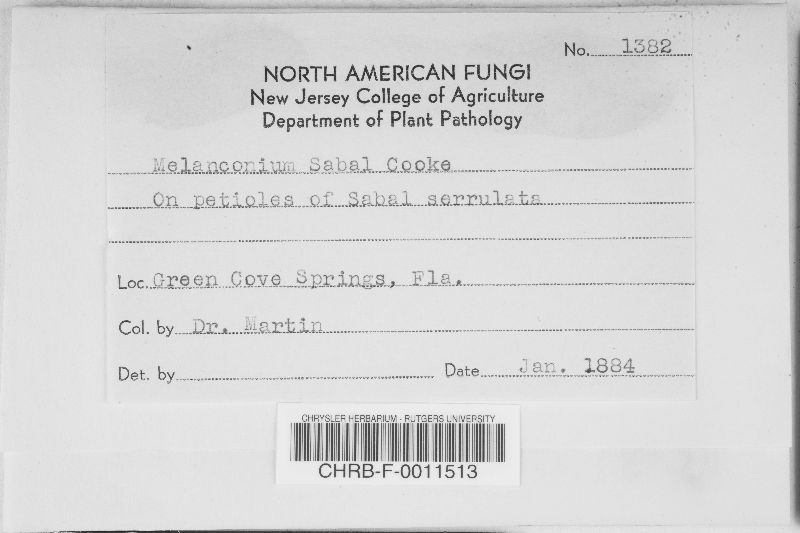 No. 1382
NORTH AMERICAN FUNGI
New Jersey College of Agriculture
Department of Plant Pathology
Melanconium Sabal Cooke
On petioles of Sabal serrulata
Loc. Green Cove Springs, Fla.
Col. by Dr. Martin
Det. by Date Jan. 1884
CHRYSLER HERBARIUM - RUTGERS UNIVERSITY
CHRB-F-0011513